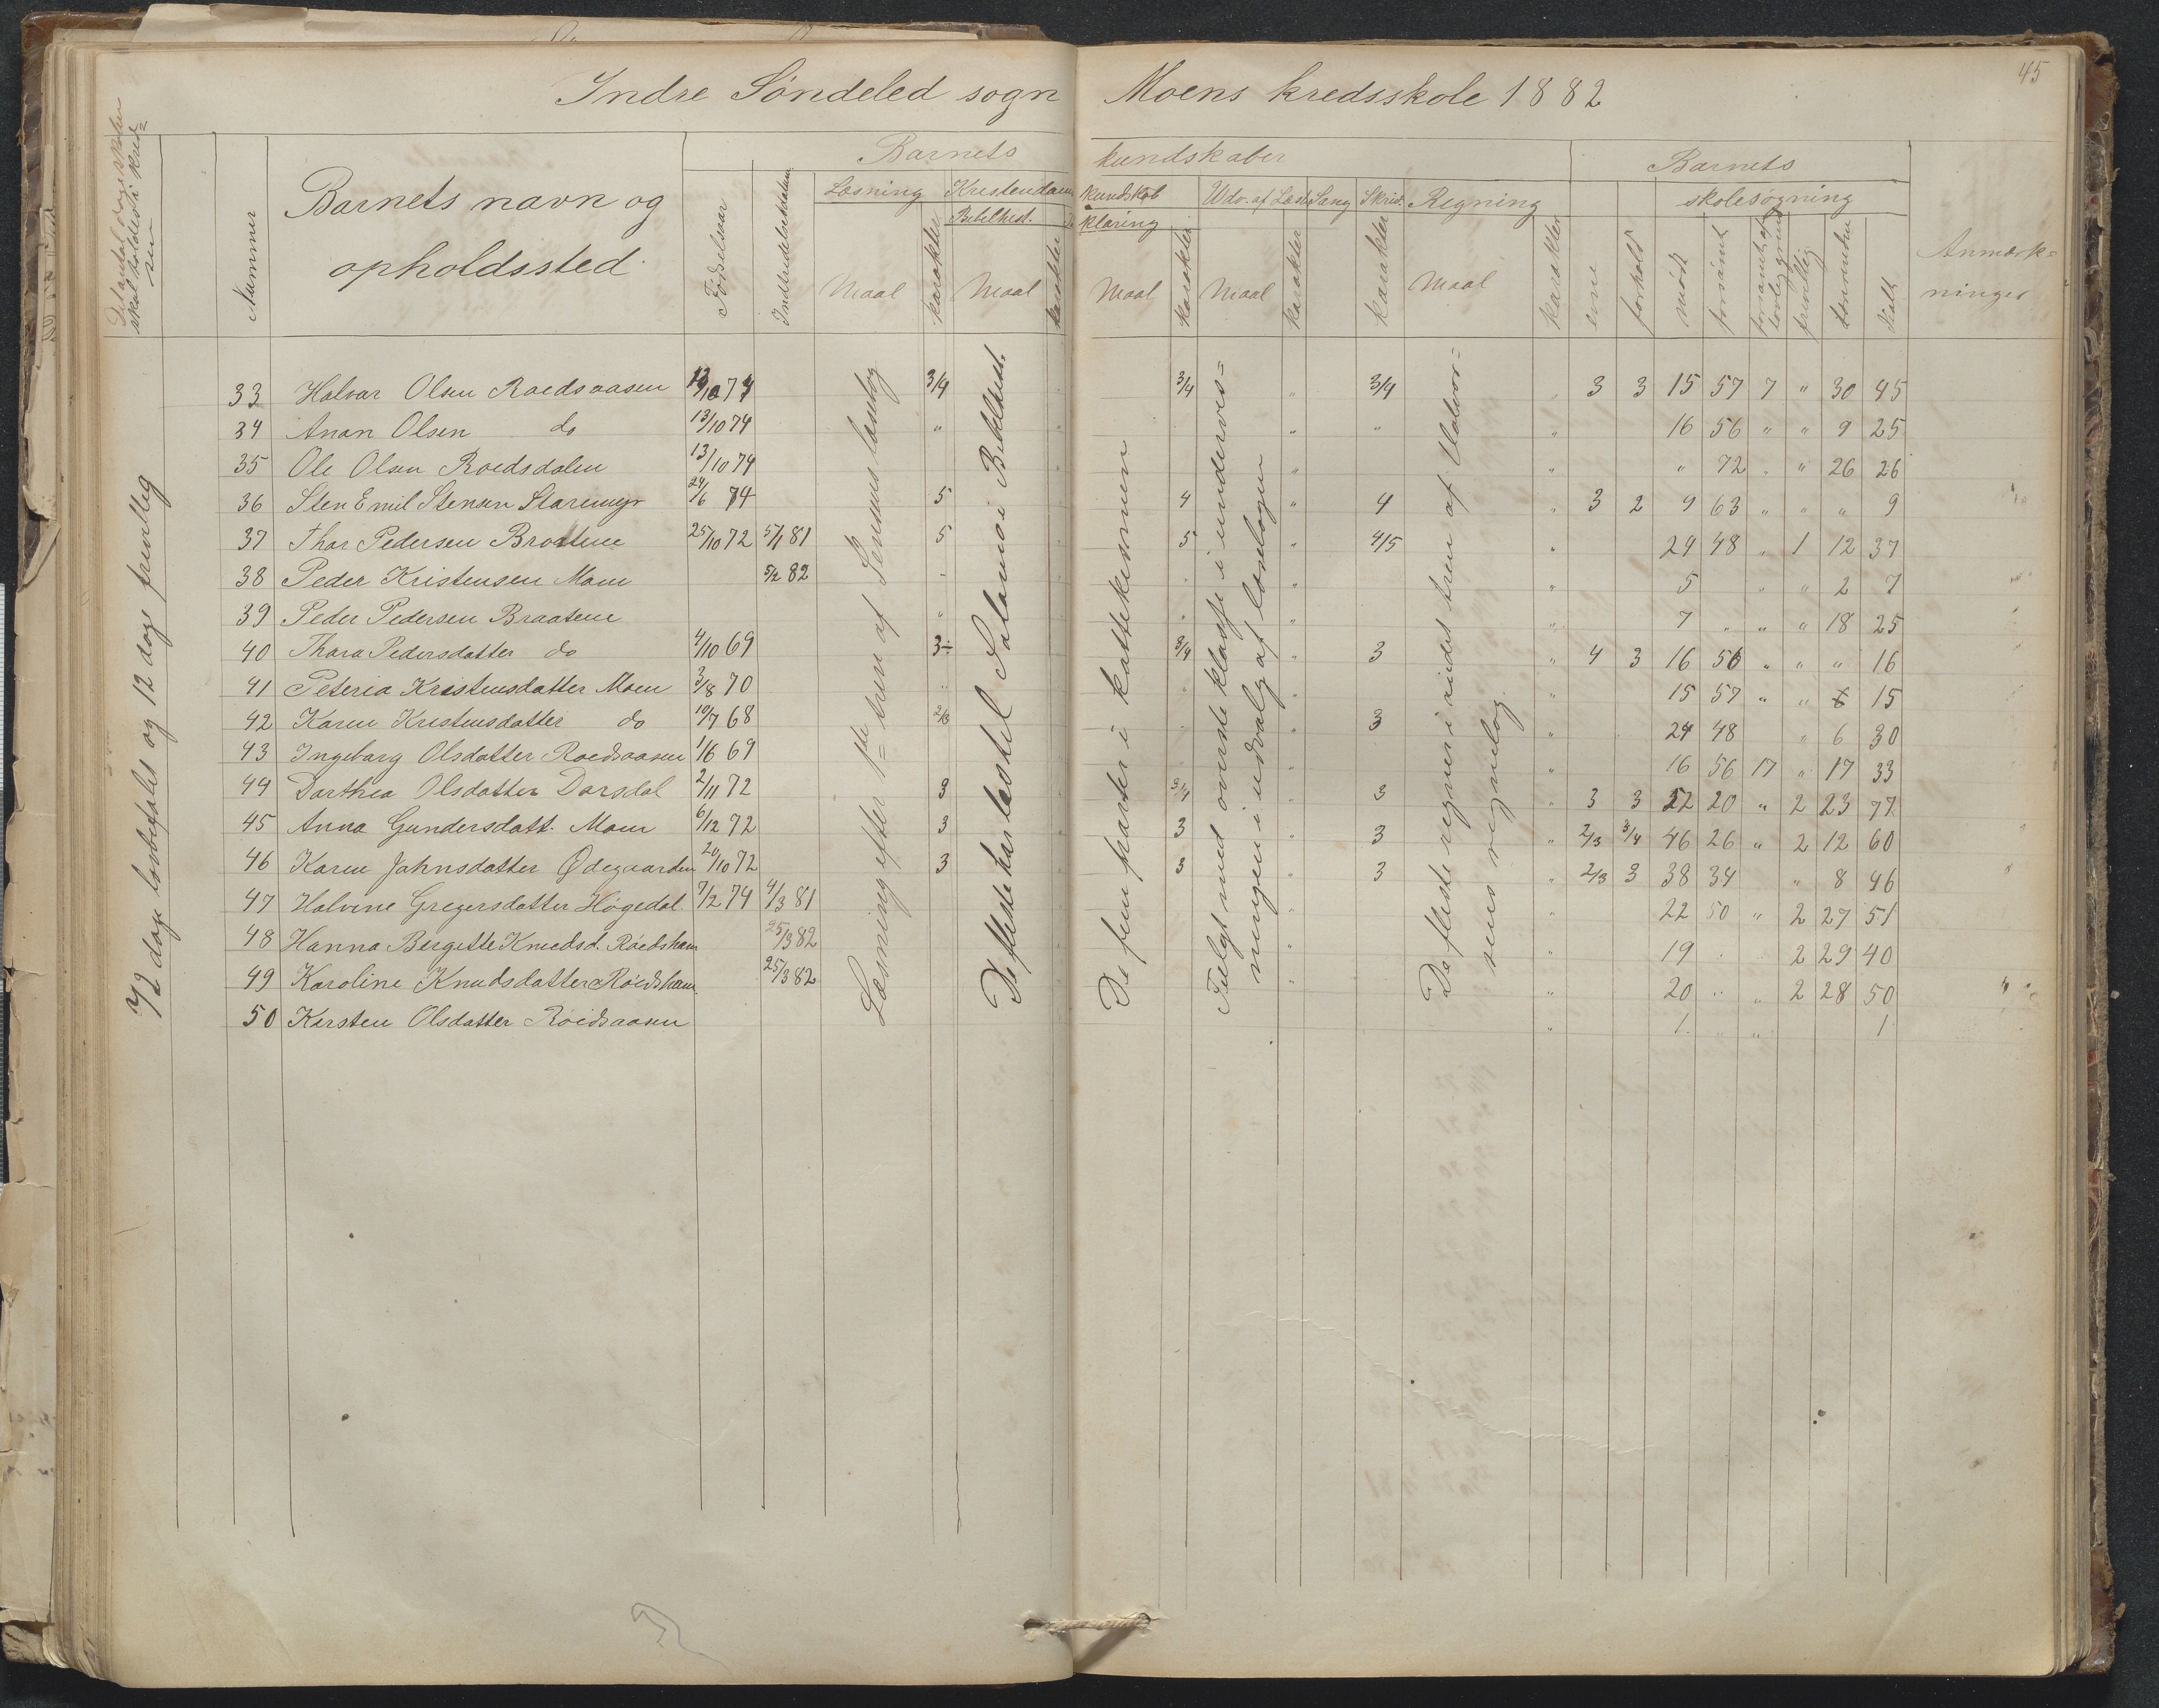 45
Indre Søndeled sogn Moens kredsskole 1882
Det antal dage skolen skal holdes i kredsen
Nummer
Barnets navn og opholdssted
Fødselsaar
Indtrædelsesdatum
Barnets kundskaber
Læsning Kristendomskundskab Udv. af Læseb. Sang Skriv. Regning
Bibelhist. Forklaring
Maal karakter Maal karakter Maal karakter Maal karakter karakter Maal karakter
Barnets skolesøgning
evne forhold mødt forsømt forsømt af lovlig grund frivillig Anmærkninger
72 dage lovbefalet og 12 dage frivillig
Læsning efter 1ste trin af Jensens læsebog
De fleste har læst til Salomo i Bibelhist.
De fem første i kattekismmen
Fulgt med øverste klasse i undervisningen i udvalg af læsebogen
De fleste regner i andet trin af
sens regnebog
33 Halvar Olsen Roedsaasen 13/10 74 3/4 3/4 " 3/4 " 3 3 15 57 7 " 30 45
34 Anon Olsen do 13/10 74 " " " " 16 56 " " 9 25
35 Ole Olsen Roedsdalen 13/10 74 " " " 72 " 26 26
36 Sten Emil Stensen Staremyr 24/6 74 5 4 " 4 " 3 2 9 63 " " " 9
37 Thor Pedersen Braatene 25/10 72 5/1 81 5 5 " 4/5 " 24 48 " 1 12 37
38 Peder Kristensen Moen 5/2 82 " " " 5 " " 2 7
39 Peder Pedersen Braatene " " " " 7 " " " 18 25
40 Thara Pedersdatter do 4/10 69 3÷ 3/4 " 3 " 4 3 16 56 " " " 16
41 Peteria Kristensdatter Moen 3/8 70 " " " " 15 57 " " 15
42 Karen Kristensdatter do 10/7 68 2/3 " 3 " 24 48 " 6 30
43 Ingebarg Olsdatter Roedsaasen 1/6 69 " " 16 56 17 " 17 33
44 Darthea Olsdatter Darsdal 2/11 72 3 3/4 " 3 " 3 3 52 20 " 2 23 77
45 Anna Gundersdatt. Moen 6/12 72 3 3 " 3 " 2/3 3/4 46 26 " 2 12 60
46 Karen Jahnsdatter Ødegaarden 20/10 72 3 3 " 3 " 2/3 3 38 34 " 8 46
47 Halvine Gregersdatter Høgedal 7/2 74 4/3 81 " " 22 50 " 2 27 51
48 Hanna Bergitte Knudsd. Röedsham 25/3 82 " " 19 2 29 40
49 Karoline Knudsdatter Röedsham 25/3 82 " " 20 " " 2 28 50
50 Karsten Olsdatter Röidsaasen " 1 " " 1